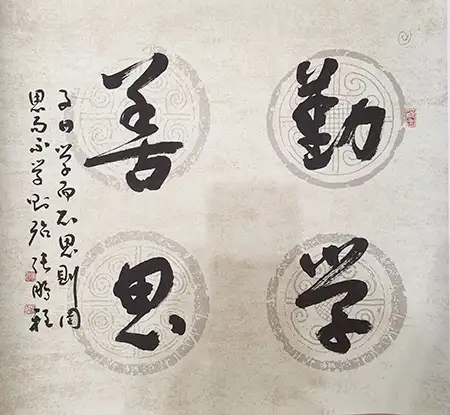 勤学
善思
子曰学而不思则罔
思而不学则殆 张鹏程